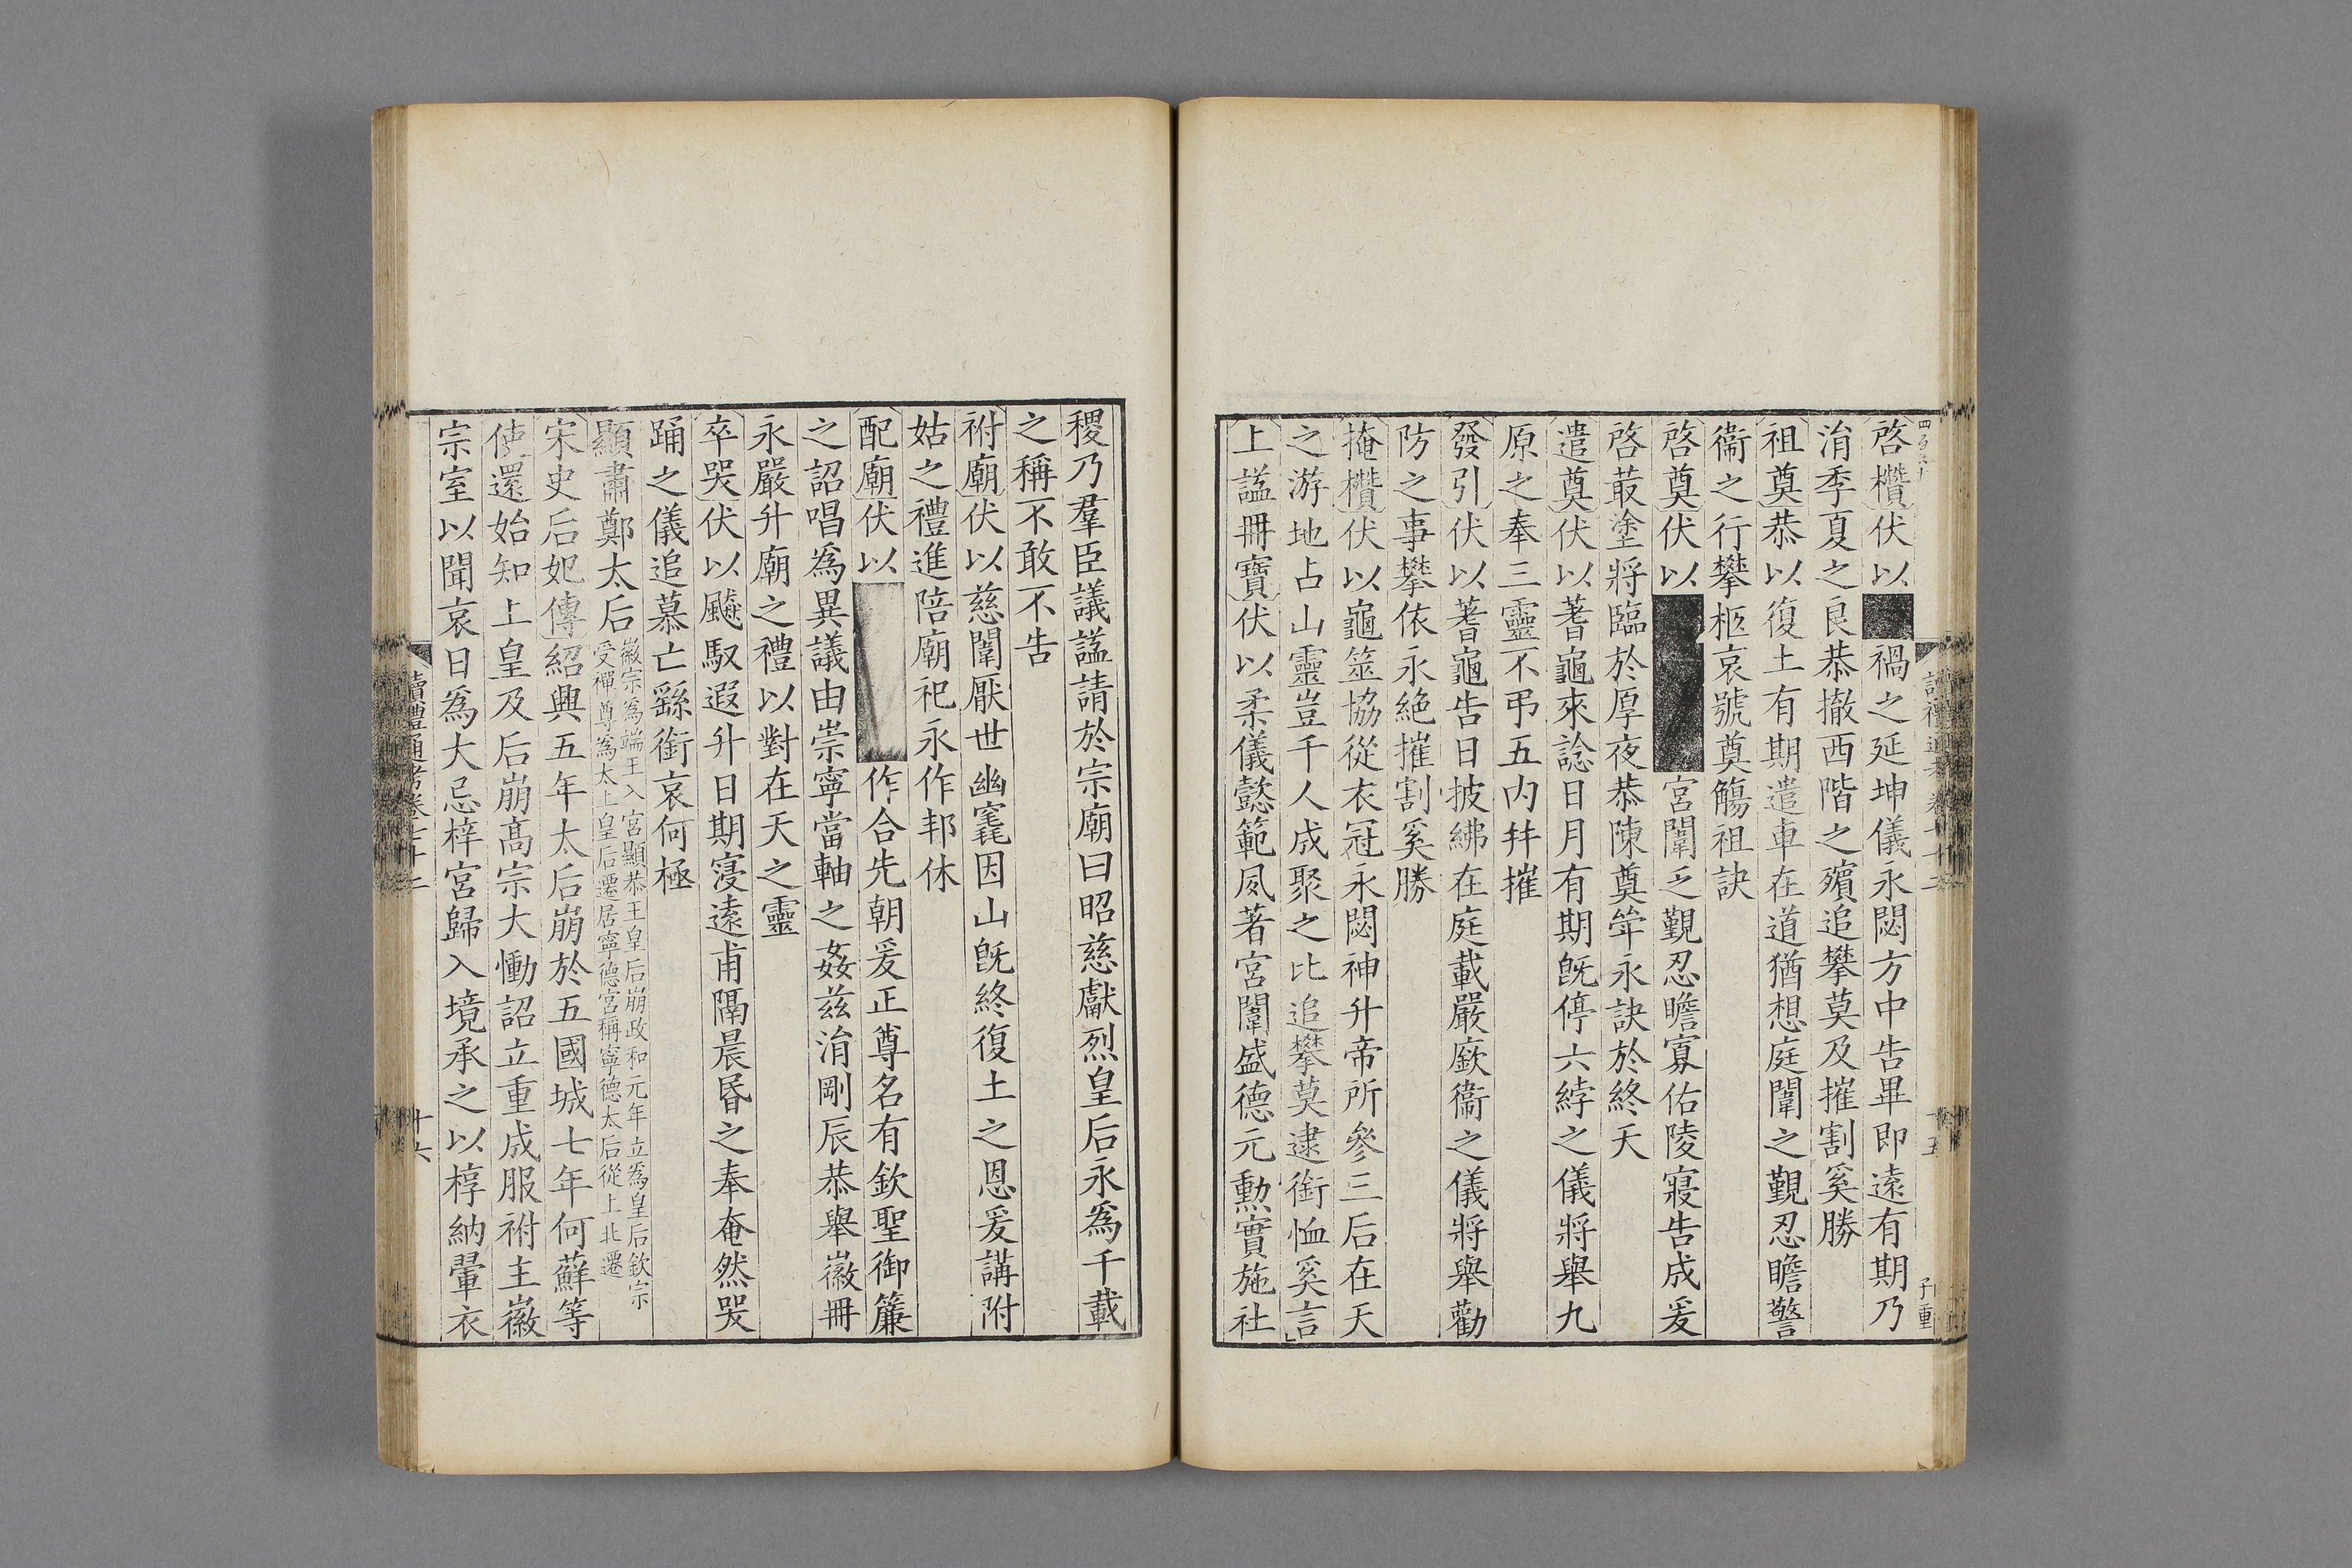 啓欑伏以■禍之延坤儀永閟方中告畢即遠有期乃
涓季夏之良恭撤西階之殯追攀莫及摧割奚勝
祖奠恭以復土有期遣車在道猶想庭闈之覲忍瞻警
衞之行攀柩哀號奠觴祖訣
啓奠伏以■宮闈之覲忍瞻寡佑陵寢告成爰
啓菆塗將臨於厚夜恭陳奠斝永訣於終天
遣奠伏以蓍龜來諗日月有期旣停六綍之儀將舉九
原之奉三靈不弔五内幷摧
發引伏以蓍龜告日披紼在庭載嚴廞衞之儀將舉勸
防之事攀依永絶摧割奚勝
掩欑伏以龜筮協從衣冠永閟神升帝所參三后在天
之游地占山靈豈千人成聚之比追攀莫逮銜恤奚言
上謚冊寶伏以柔儀懿範夙著宮闈盛德元勲實施社
稷乃羣臣議謚請於宗廟曰昭慈獻烈皇后永爲千載
之稱不敢不告
祔廟伏以慈闈厭世幽窀因山旣終復土之恩爰講附
姑之禮進陪廟祀永作邦休
配廟伏以■作合先朝爰正尊名有欽聖御簾
之詔唱爲異議由崇寧當軸之姦茲涓剛辰恭舉徽冊
永嚴升廟之禮以對在天之靈
卒哭伏以飈馭遐升日期寖遠甫隔晨昬之奉奄然哭
踊之儀追慕亡繇銜哀何極
顯肅鄭太后徽宗爲端王入宮顯恭王皇后崩政和元年立爲皇后欽宗
受禪尊爲太上皇后遷居寧德宮稱寧德太后從上北遷
宋史后妃傳紹興五年太后崩於五國城七年何蘚等
使還始知上皇及后崩高宗大慟詔立重成服祔主徽
宗室以聞哀日爲大忌梓宮歸入境承之以椁納翬衣
讀禮通考卷七十二
十六